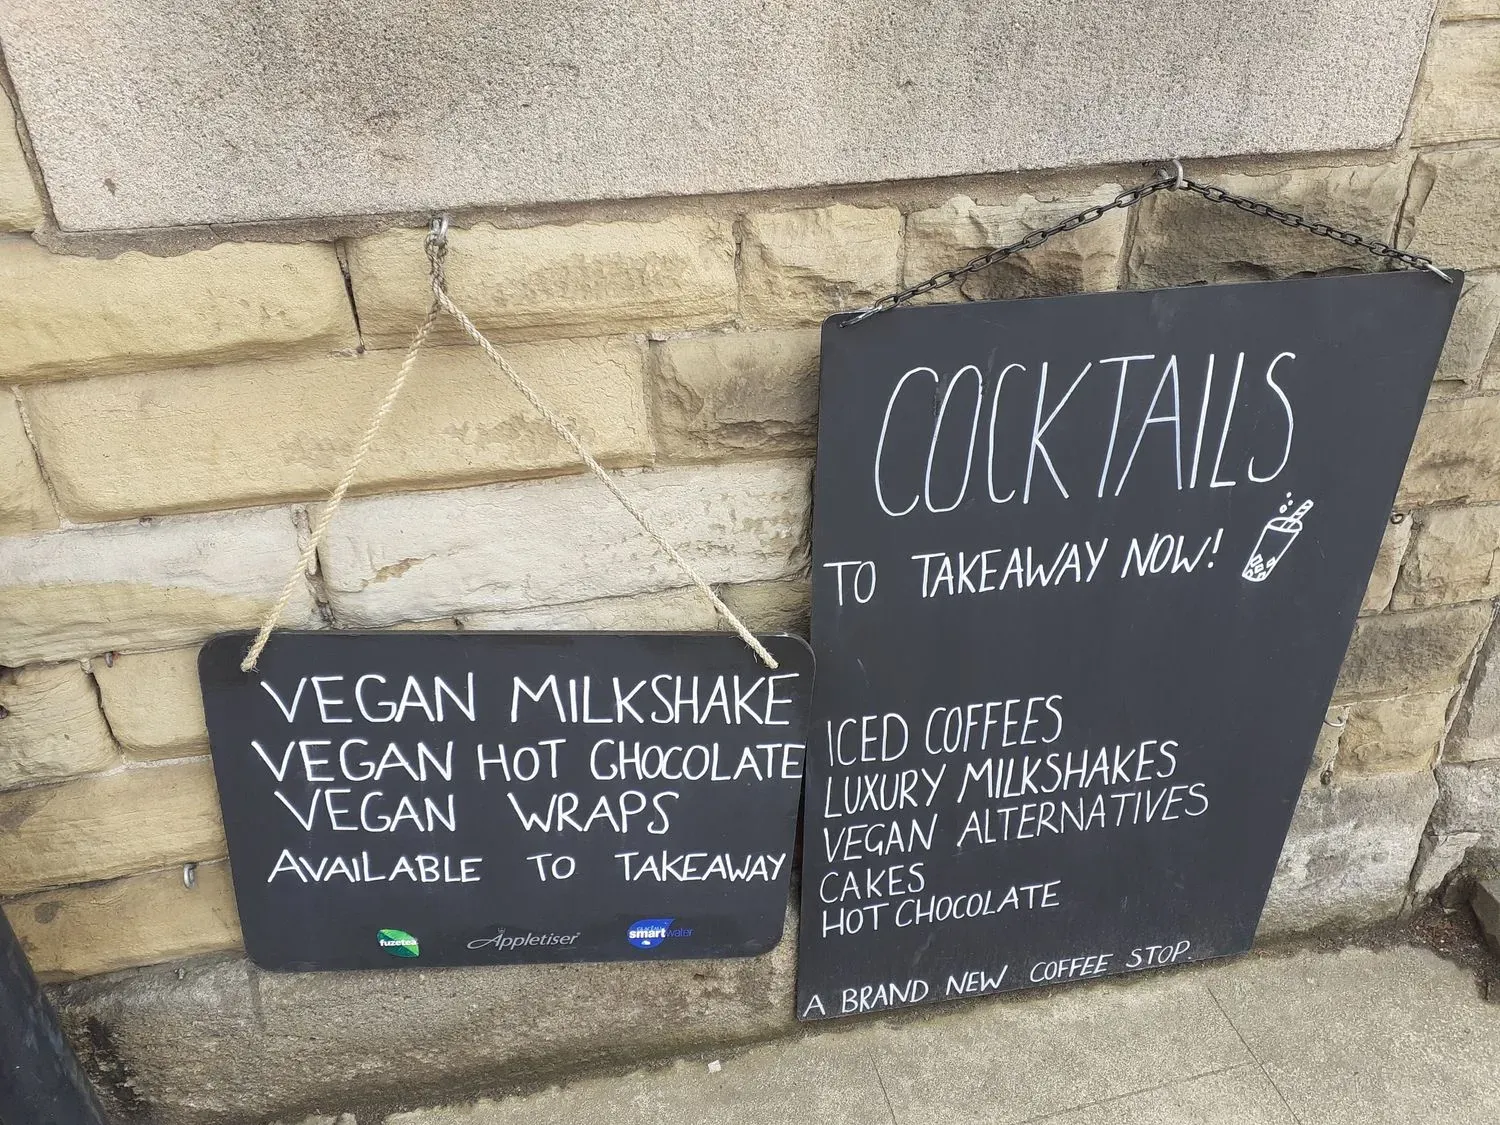 VEGAN MILKSHAKE
VEGAN HOT CHOCOLATE
VEGAN WRAPS
AVAILABLE TO TAKEAWAY
fuzetea
Appletiser
smartwater
COCKTAILS
TO TAKEAWAY NOW!
ICED COFFEES
LUXURY MILKSHAKES
VEGAN ALTERNATIVES
CAKES
HOT CHOCOLATE
A BRAND NEW COFFEE STOP.